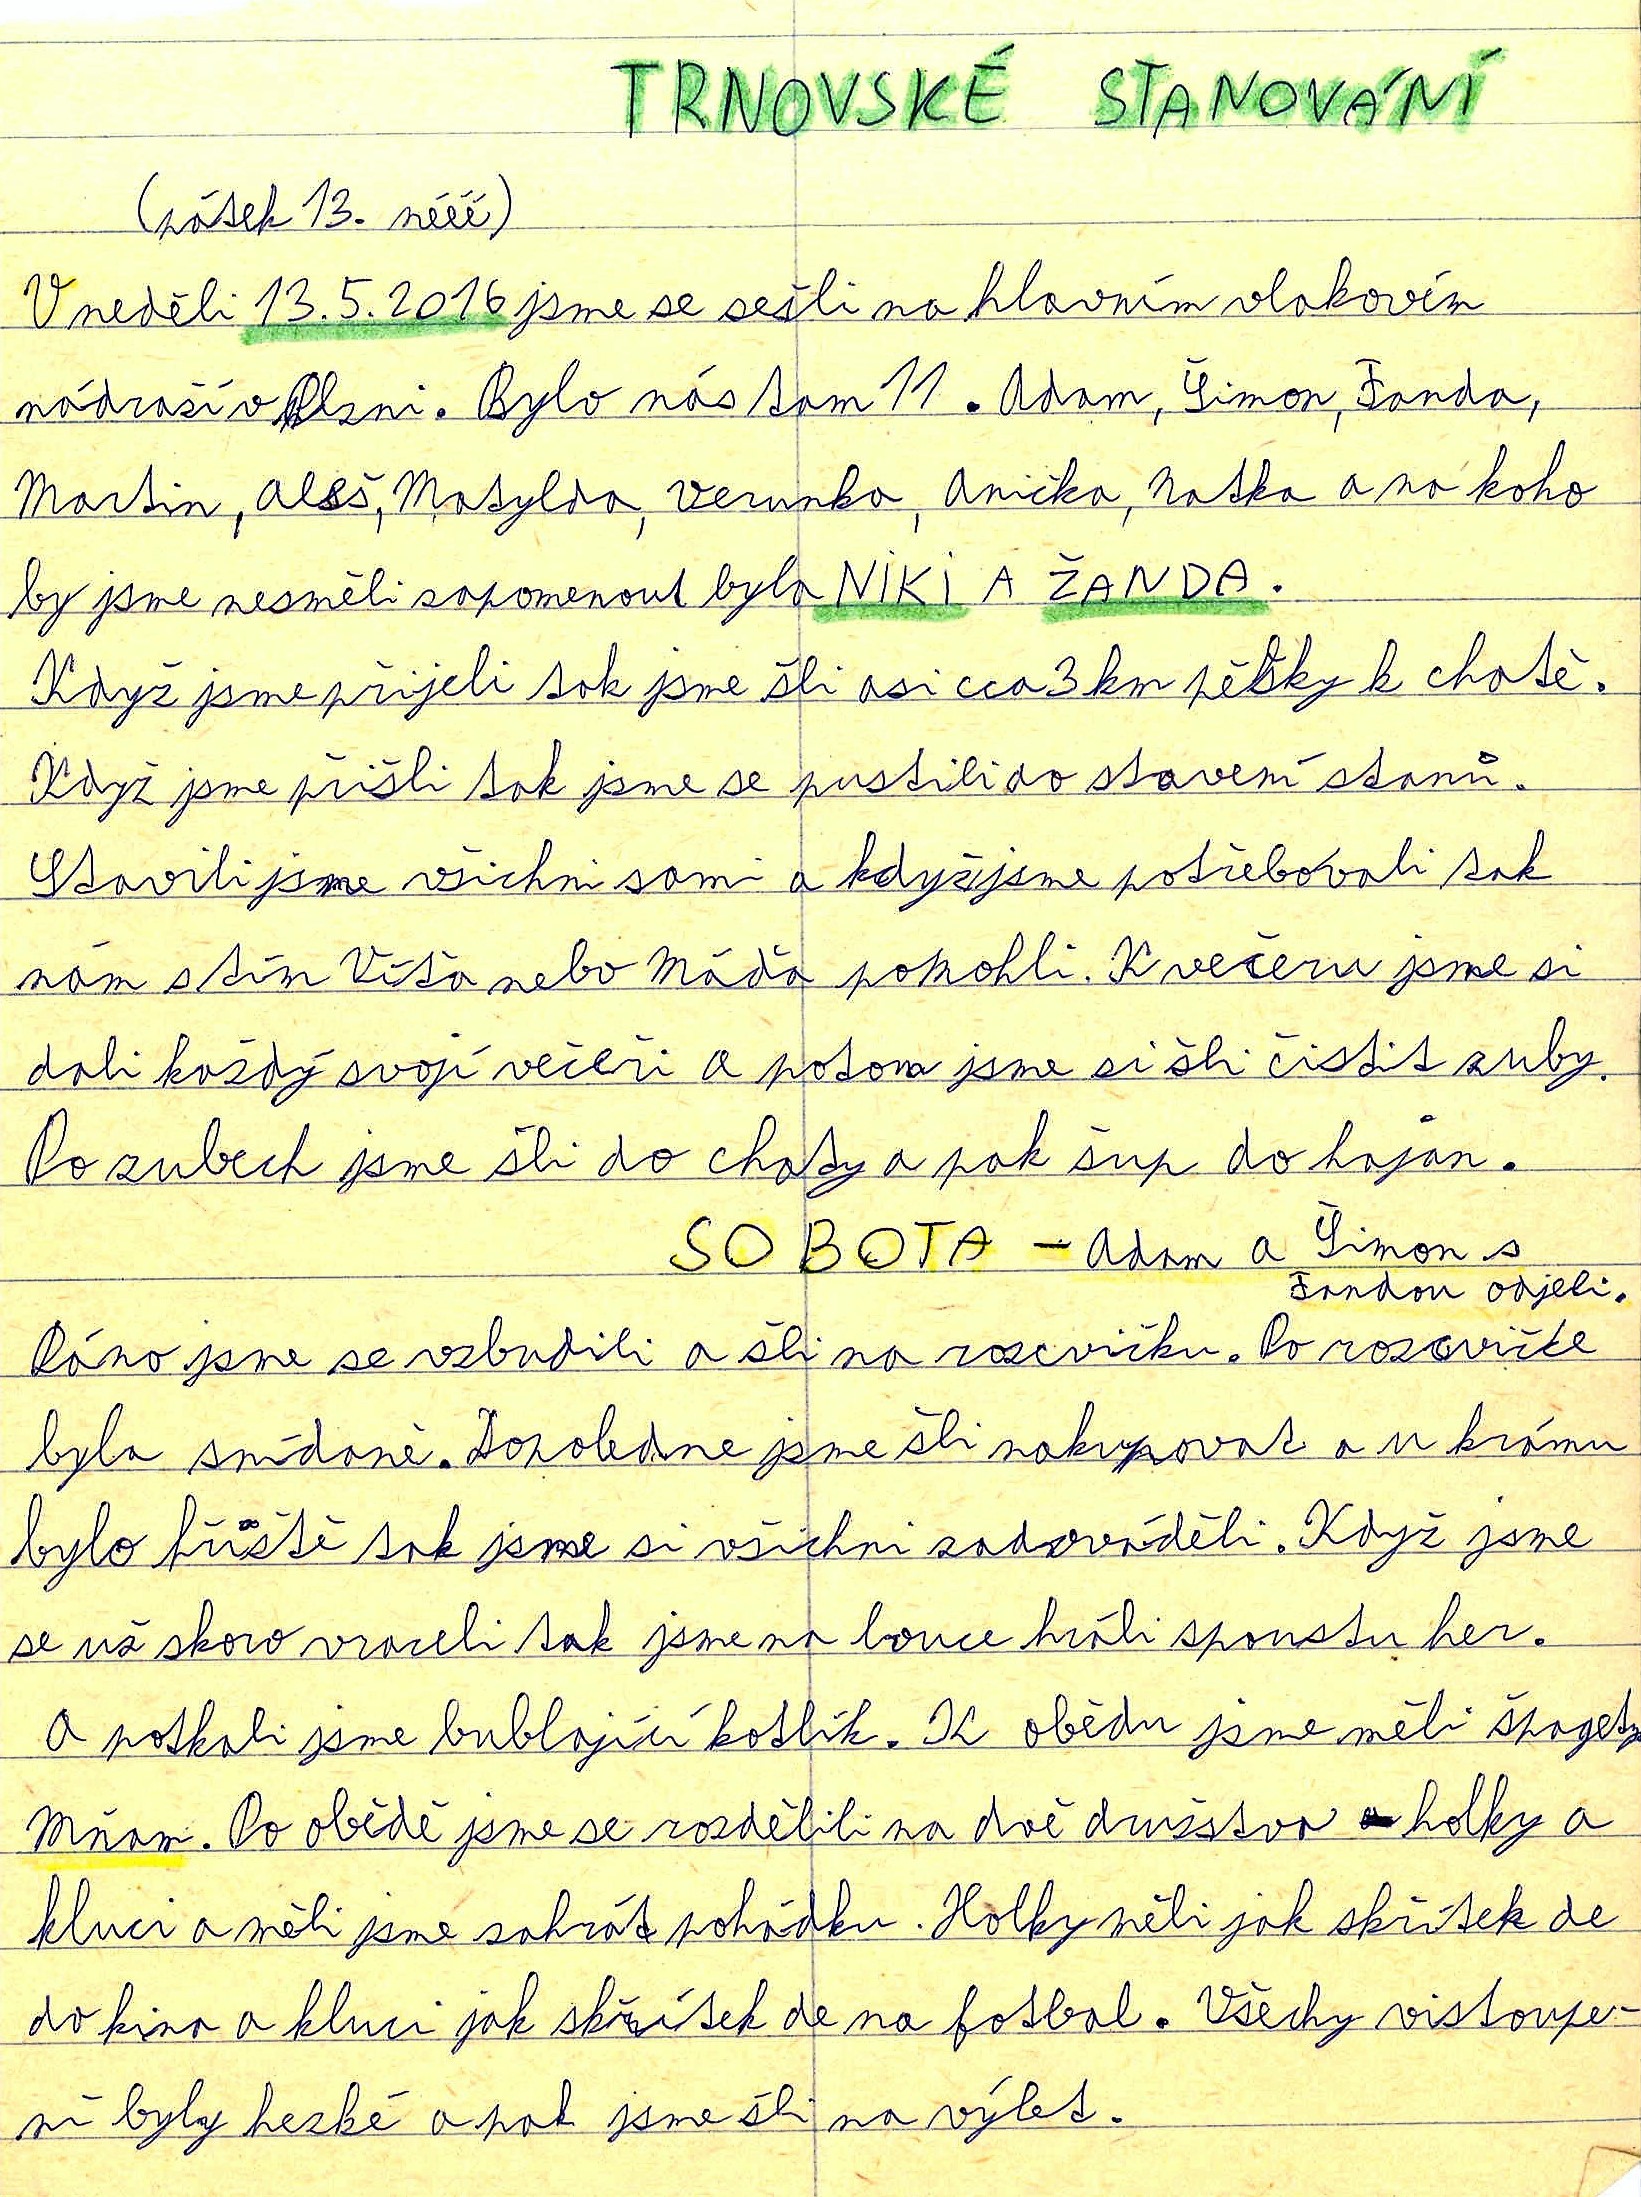 TRNOVSKÉ STANOVÁNÍ
(pátek 13. nééé)
V neděli 13.5.2016 jsme se sešli na hlavním vlakovím
nádraží v Plzni. Bylo nás tam 11. Adam, Šimon, Fanda,
Martin, Aleš, Matylda, Verunka, Anička, Natka a na koho
by jsme nesměli zapomenout byla NIKI A ŽANDA.
Když jsme přijeli tak jsme šli asi cca 3 km pěšky k chatě.
Když jsme přišli tak jsme se pustili do stavení stanů.
Stavili jsme všichni sami a když jsme potřebovali tak
nám s tím Víťa nebo Máďa pomohli. K večeru jsme si
dali každý svojí večeři a potom jsme si šli čistit zuby.
Po zubech jsme šli do chaty a pak šup do hajan.
SOBOTA - Adam a Šimon s
Fandou odjeli.
Ráno jsme se vzbudili a šli na rozcvičku. Po rozcvičce
byla snídaně. Dopoledne jsme šli nakupovat a u krámu
bylo hřiště tak jsme si všichni zadováděli. Když jsme
se už skoro vraceli tak jsme na louce hráli spoustu her.
A potkali jsme bublající kotlík. K obědu jsme měli špagety
Mňam. Po obědě jsme se rozdělili na dvě družstva holky a
kluci a měli jsme zahrát pohádku. Holky měli jak skřítek de
do kina a kluci jak skřítek de na fotbal. Všechy vistoupe-
ní byly hezké a pak jsme šli na výlet.